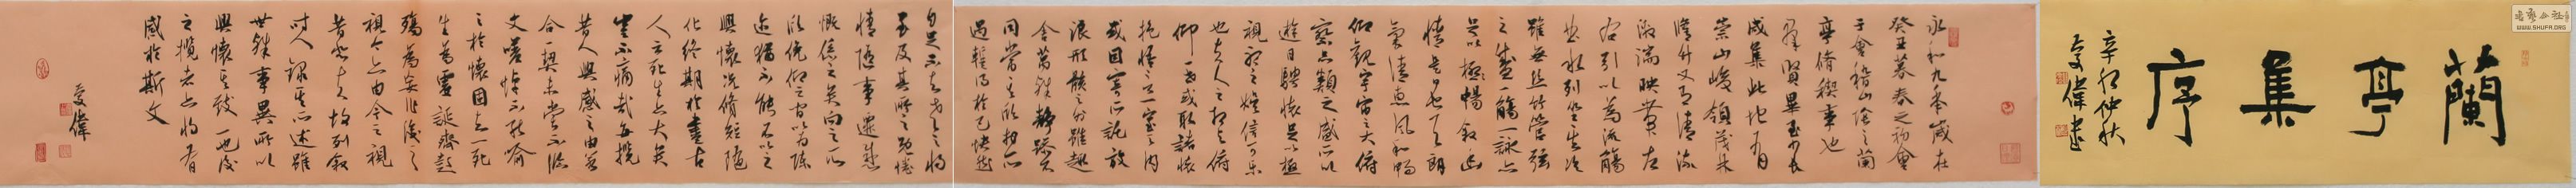 蘭亭集序
辛卯仲秋
偉書
永和九年歲在
癸丑暮春之初會
于會稽山陰之蘭
亭脩禊事也
群賢畢至少長
咸集此地有
崇山峻領茂林
脩竹又有清流
激湍映帶左
右引以為流觴
曲水列坐其次
雖無絲竹管弦
之盛一觴一詠亦
足以極暢叙幽
情是日也天朗
氣清惠風和暢
仰觀宇宙之大俯
察品類之盛所以
遊目騁懷足以極
視聽之娛信可樂
也夫人之相與俯
仰一世或取諸懷
抱悟言一室之內
或因寄所託放
浪形骸之外雖趣
舍萬殊靜躁不
同當其欣於所
遇蹔得於己快然
自足不知老之將
至及其所之既惓
情隨事遷感
慨係之矣向之所
欣俛仰之間以為陳
迹猶不能不以之
興懷況脩短隨
化終期於盡古
人云死生亦大矣
豈不痛哉每攬
昔人興感之由若
合一契未嘗不臨
文嗟悼不能喻
之於懷固知一死
生為虛誕齊彭
殤為妄作後之
視今亦由今之視
昔悲夫故列叙
時人錄其所述雖
世殊事異所以
興懷其致一也後
之攬者亦將有
感於斯文
偉